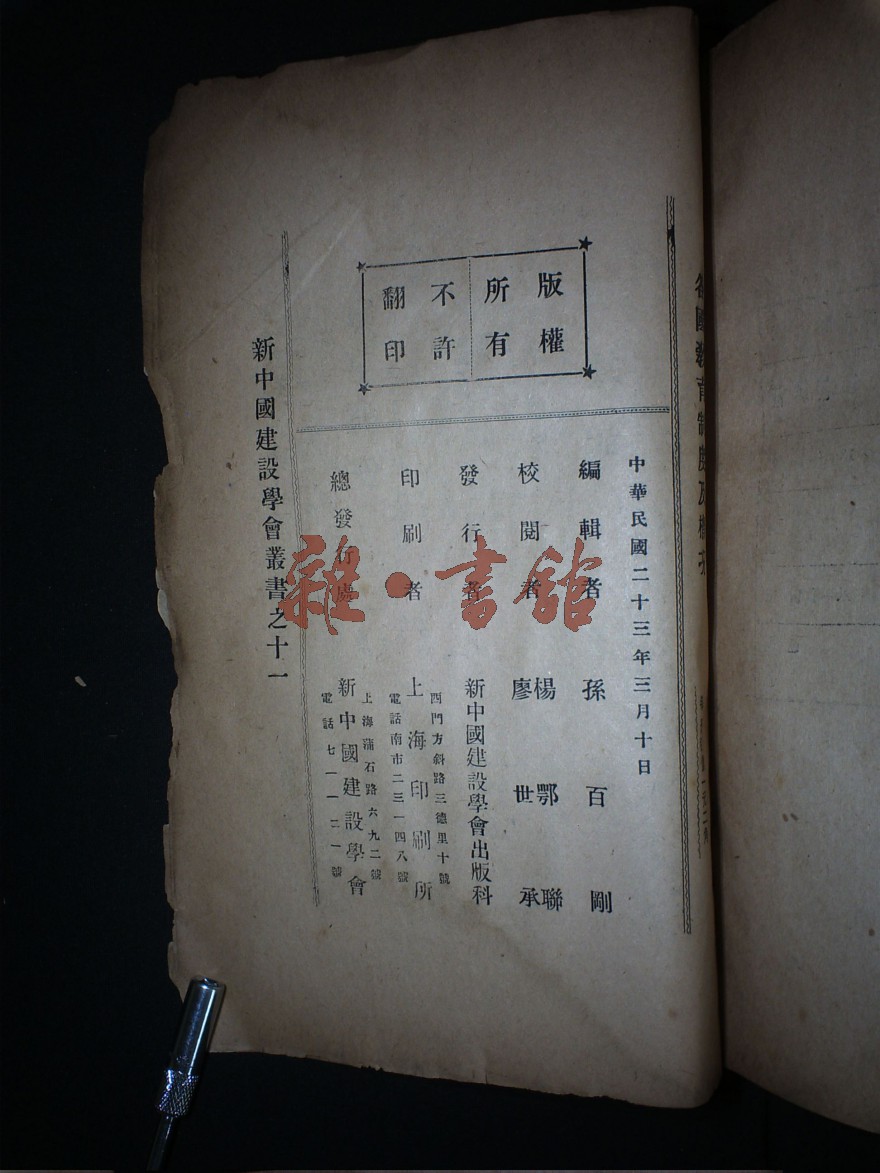 版權
所有
不許
翻印
中華民國二十三年三月十日
編輯者 孫百剛
校閱者 楊鄂聯
廖世承
發行者 新中國建設學會出版科
印刷者 上海印刷所
西門方斜路三德里十號
電話南市二三一四八號
總發行處 新中國建設學會
上海蒲石路六九二號
電話七一一二一號
新中國建設學會叢書之十一
雜·書館